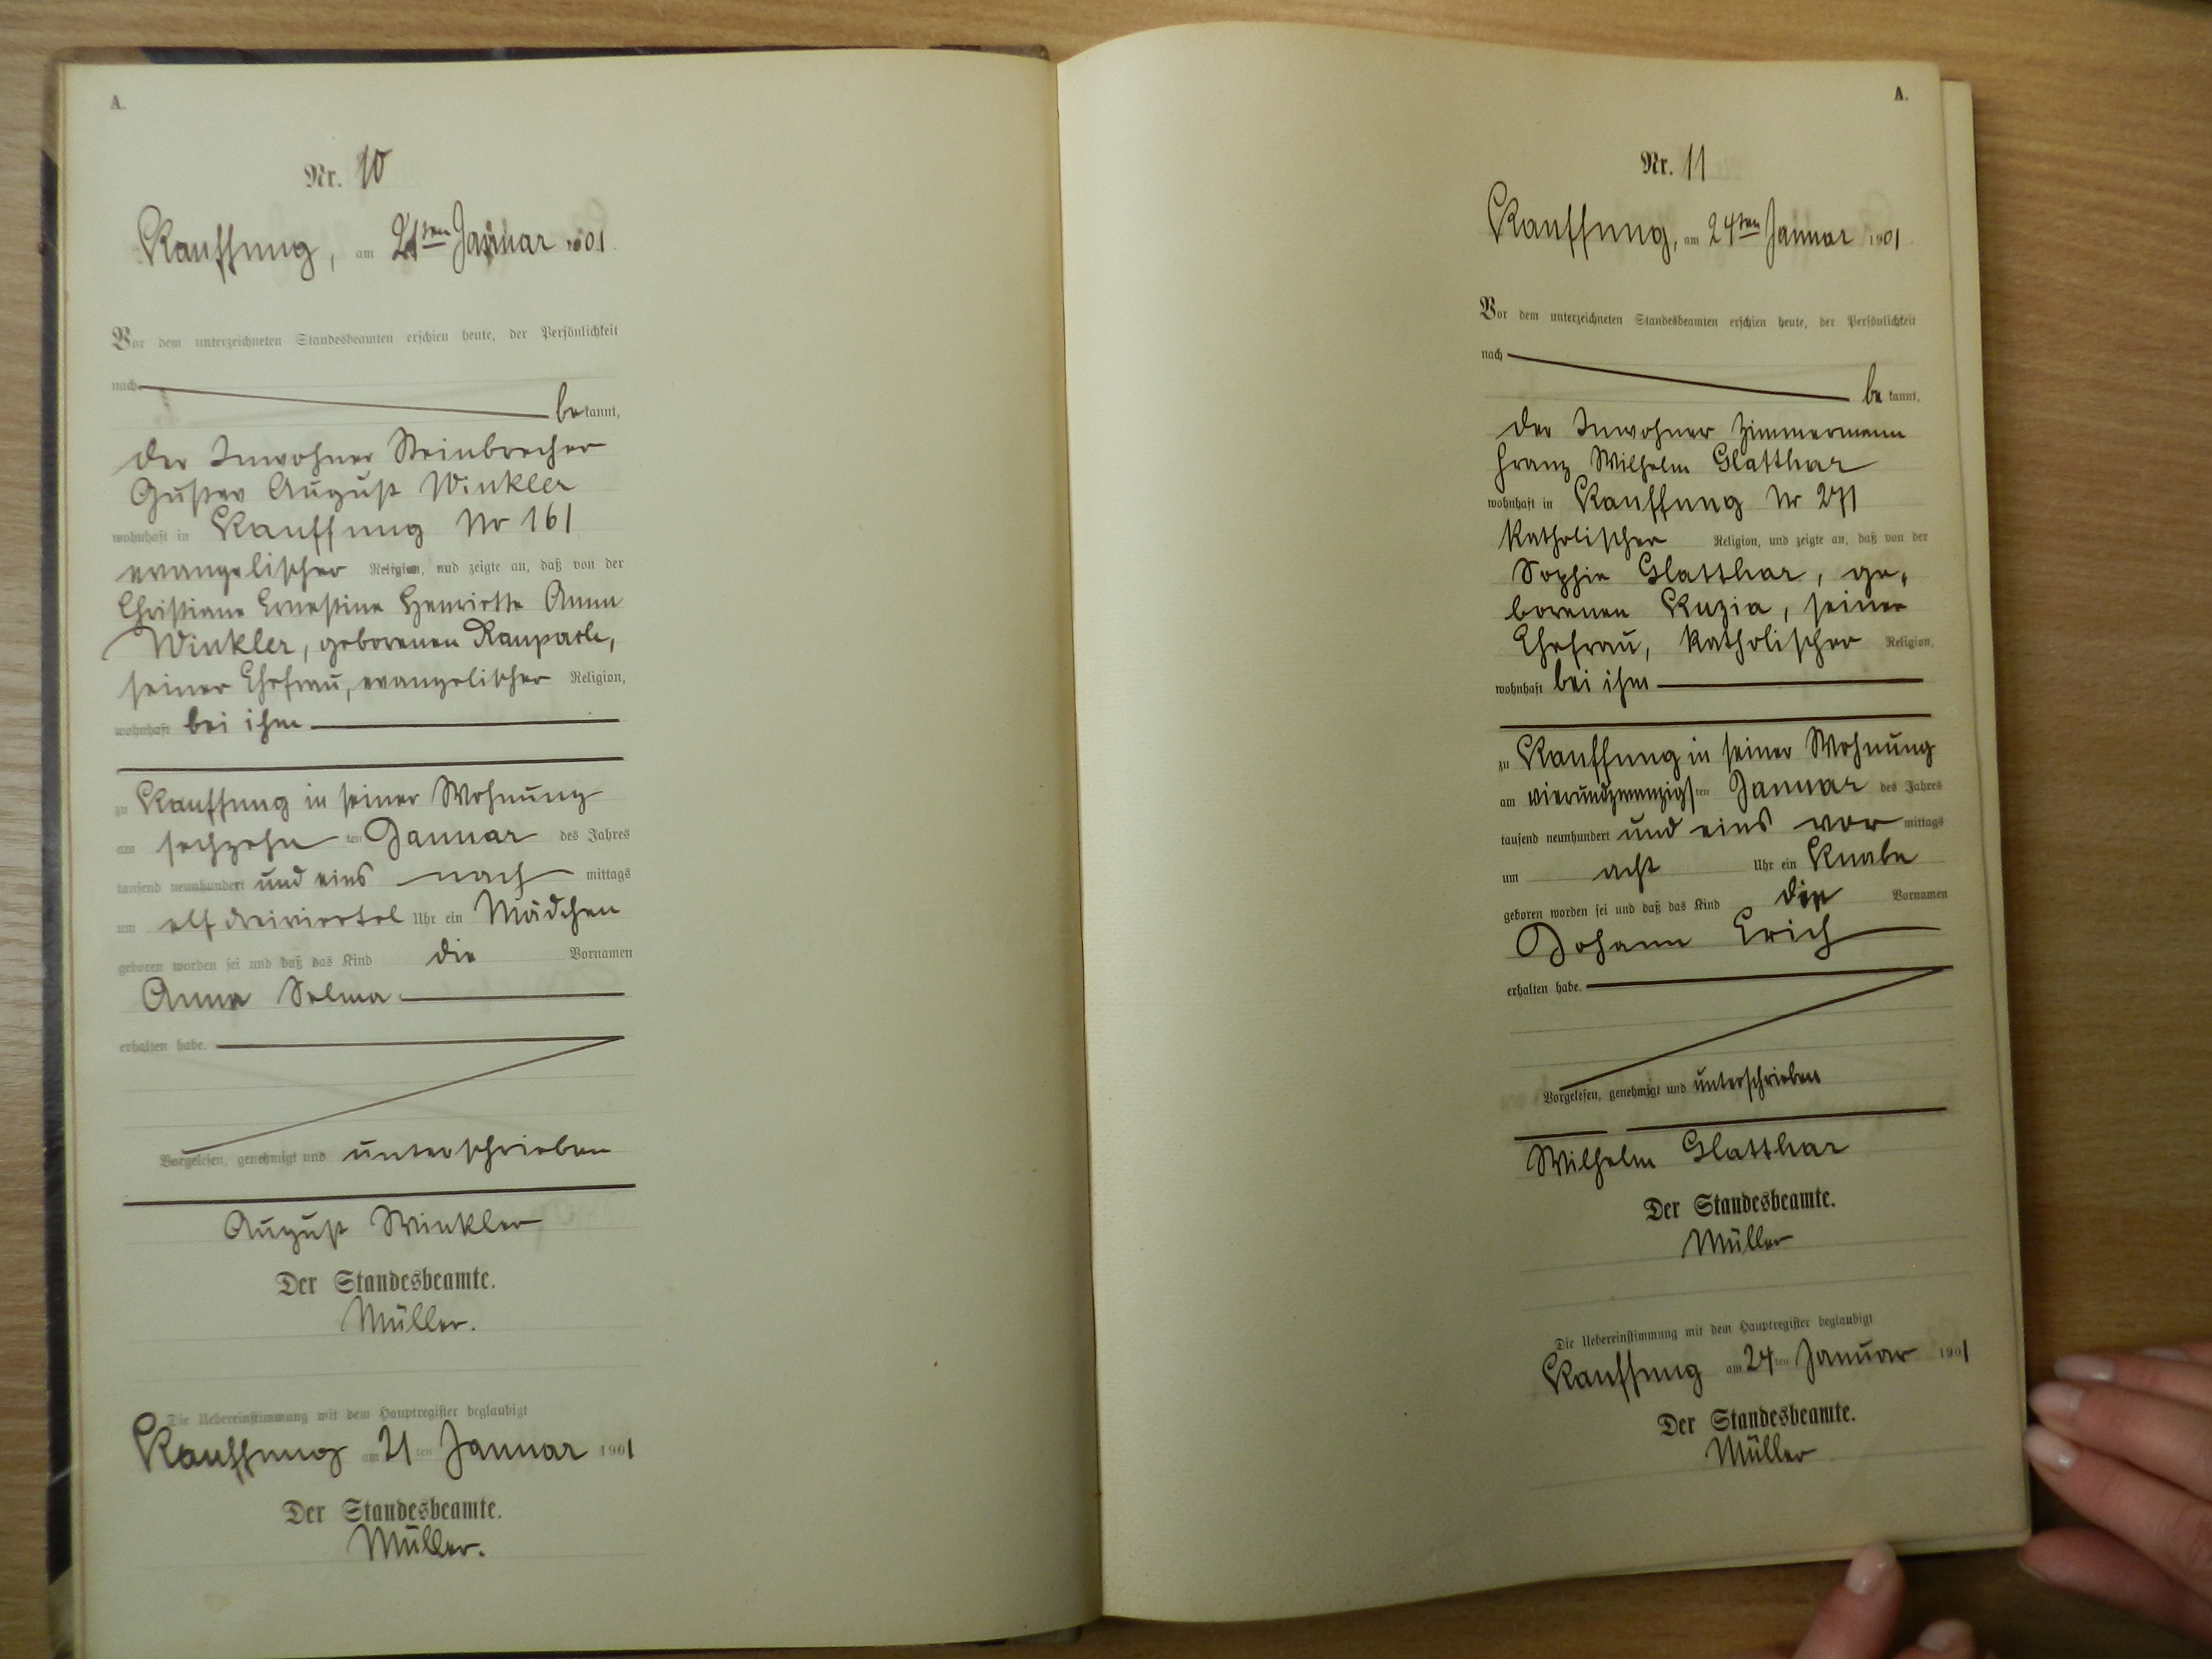 A.
Nr. 10
Kauffung, am 21ten Januar 1901.
Vor dem unterzeichneten Standesbeamten erschien heute, der Persönlichkeit
nach
bekannt,
der Inwohner Steinbrecher
Gustav August Winkler
wohnhaft in Kauffung Nr 161
evangelischer Religion, und zeigte an, daß von der
Christiane Ernestine Henriette Anna
Winkler, geborenen
seiner Ehefrau, evangelischer Religion,
wohnhaft bei ihm
zu Kauffung in seiner Wohnung
am sechzehn ten Januar des Jahres
tausend neunhundert und eins nach mittags
um elf dreiviertel Uhr ein Mädchen
geboren worden sei und daß das Kind die Vornamen
Anna Selma
erhalten habe.
Vorgelesen, genehmigt und unterschrieben
August Winkler
Der Standesbeamte.
Müller.
Die Uebereinstimmung mit dem Hauptregister beglaubigt
Kauffung am 21 ten Januar 1901
Der Standesbeamte.
Müller.
A.
Nr. 11
Kauffung, am 24ten Januar 1901.
Vor dem unterzeichneten Standesbeamten erschien heute, der Persönlichkeit
nach
bekannt,
der Inwohner Zimmermann
Franz Wilhelm Glatthar
wohnhaft in Kauffung Nr 271
katholischer Religion, und zeigte an, daß von der
Sophie Glatthar, ge-
borenen Kuzia, seiner
Ehefrau, katholischer Religion,
wohnhaft bei ihm
zu Kauffung in seiner Wohnung
am vierundzwanzigsten Januar des Jahres
tausend neunhundert und eins vor mittags
um acht Uhr ein Knabe
geboren worden sei und daß das Kind die Vornamen
Johann Erich
erhalten habe.
Vorgelesen, genehmigt und unterschrieben
Wilhelm Glatthar
Der Standesbeamte.
Müller
Die Uebereinstimmung mit dem Hauptregister beglaubigt
Kauffung am 24 ten Januar 1901
Der Standesbeamte.
Müller